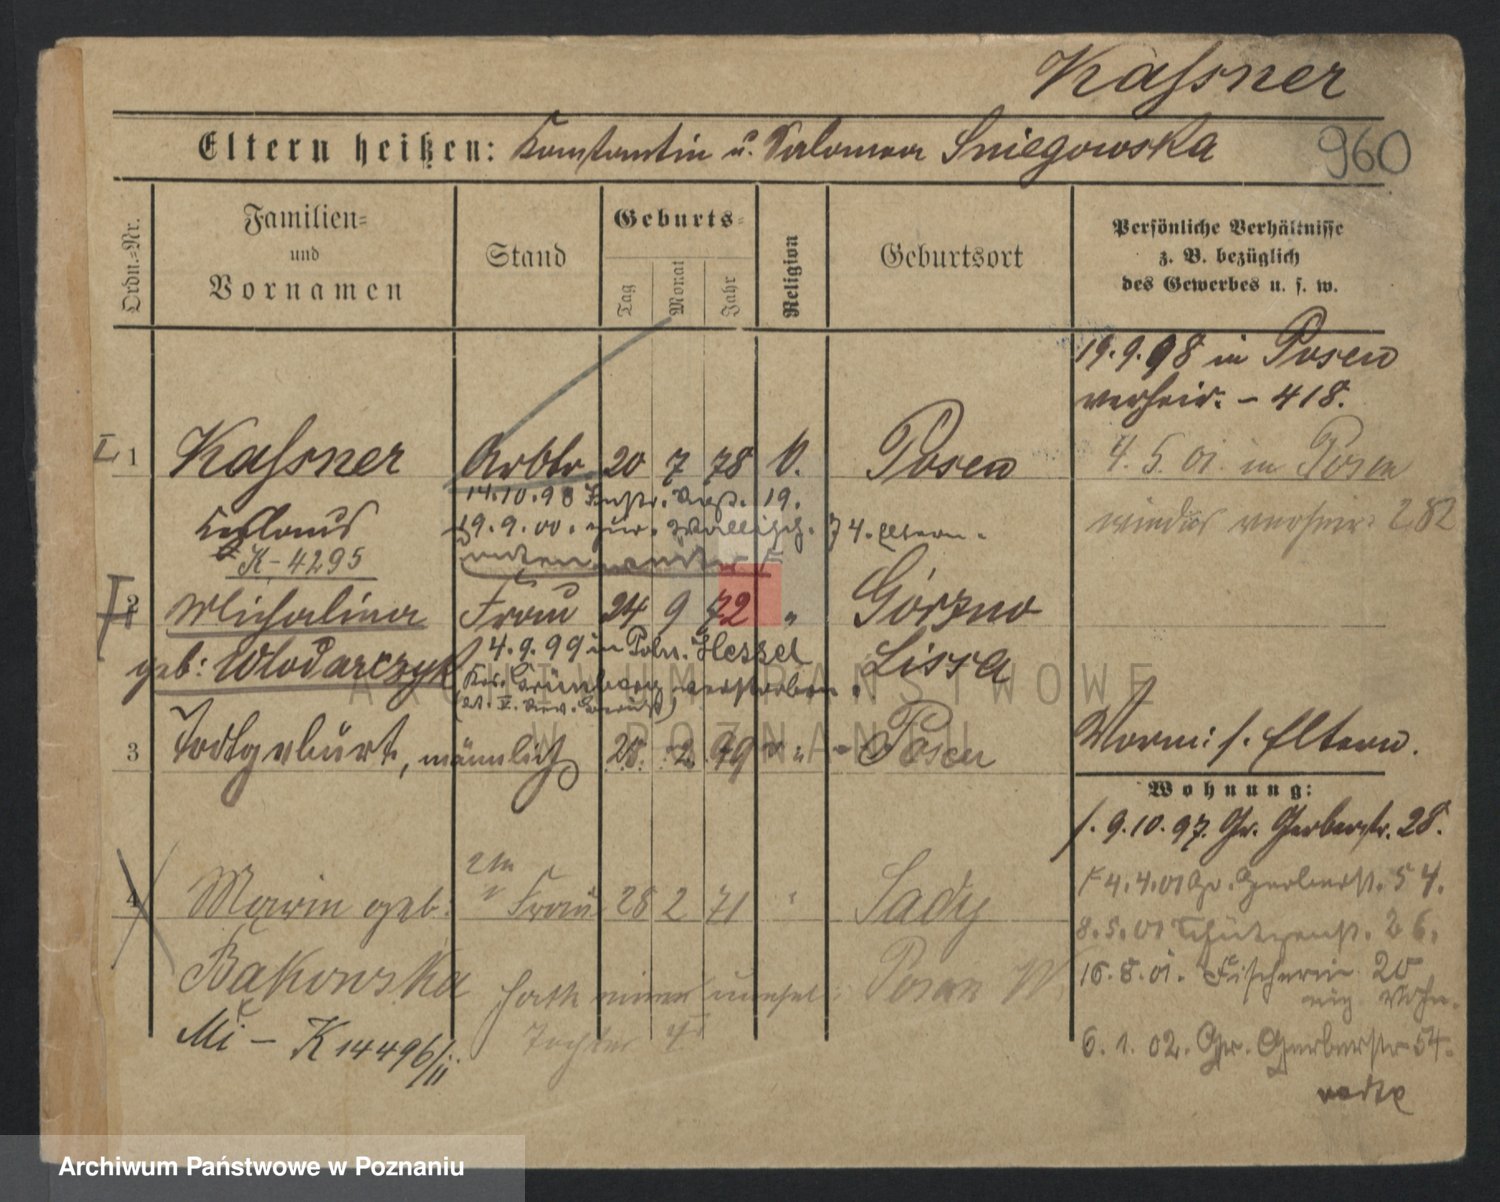 Kassner
Eltern heißen: Konstantin u. Salomea Sniegowska
960
Ordn.-Nr.
Familien-
und
Vornamen
Stand
Geburts-
Tag
Monat
Jahr
Religion
Geburtsort
Persönliche Verhältnisse
z. B. bezüglich
des Gewerbes u. s. w.
19.9.98 in Posen
verheir. - 418.
1 Kassner Arbtr 20 7 78 Posen
4.5.01. in Posen
14.10.98 19.
wieder verheir. 282
19.9.00. zur. 74. Eltern.
K-4295
2 Michalina Frau 24 9 72 " Górzno
geb: Wlodarczyk 4.9.99 in Lissa
Kr. Grünberg verstorben.
3 Todtgeburt, männlich 28. 2. 99 " Posen
Vorm: s. Eltern.
Wohnung:
s. 9.10.97. Gr. Gerberstr. 28.
4 2te Frau 28 2 71 " Sady
4.4.01 Gr. Gerberst. 54.
geb.
8.5.01 Schützenst. 26.
Bakowska hatte einen unehel. Posen W.
15.8.01. Fischerei 20
Tochter
Mi - K 14496/II
6.1.02. Gr. Gerberstr. 54.
ARCHIWUM PAŃSTWOWE
W POZNANIU
Archiwum Państwowe w Poznaniu